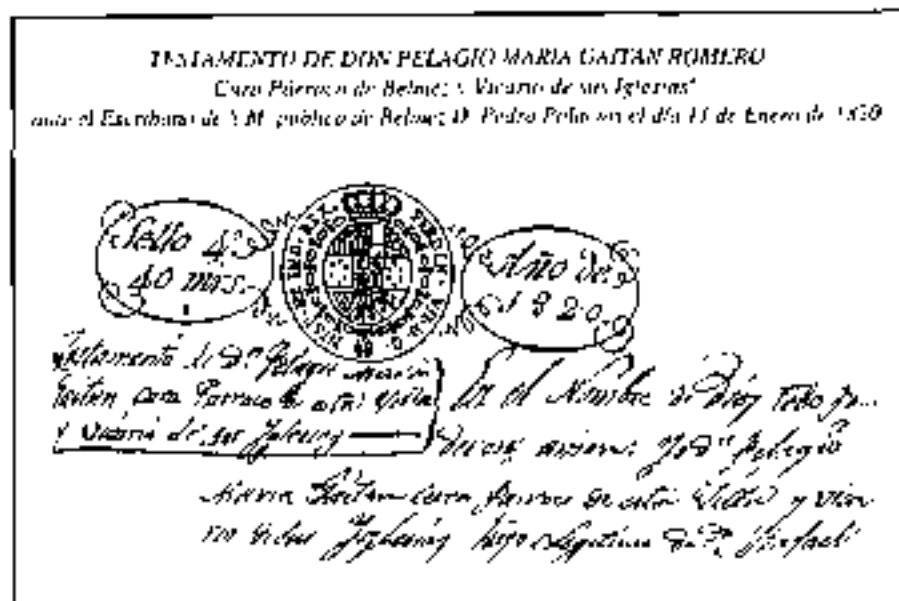 TESTAMENTO DE DON PELAGIO MARIA GAITAN ROMERO
Cura Párroco de Belmez y Vicario de sus Iglesias
ante el Escribano de S.M. público de Belmez D. Pedro en el día 11 de Enero de 1820
Sello 4º
40 mrs.
Año de
1820.
Testamento de Dn Pelagio Maria
Gaitan cura Parroco de esta Villa
y Vicario de sus Iglesias
En el Nombre de Dios Todo po
deroso Yo Dn Pelagio
Maria Gaitan cura Parroco de esta Villa y Vica
rio de sus Iglesias hijo legitimo de Dn Rafael